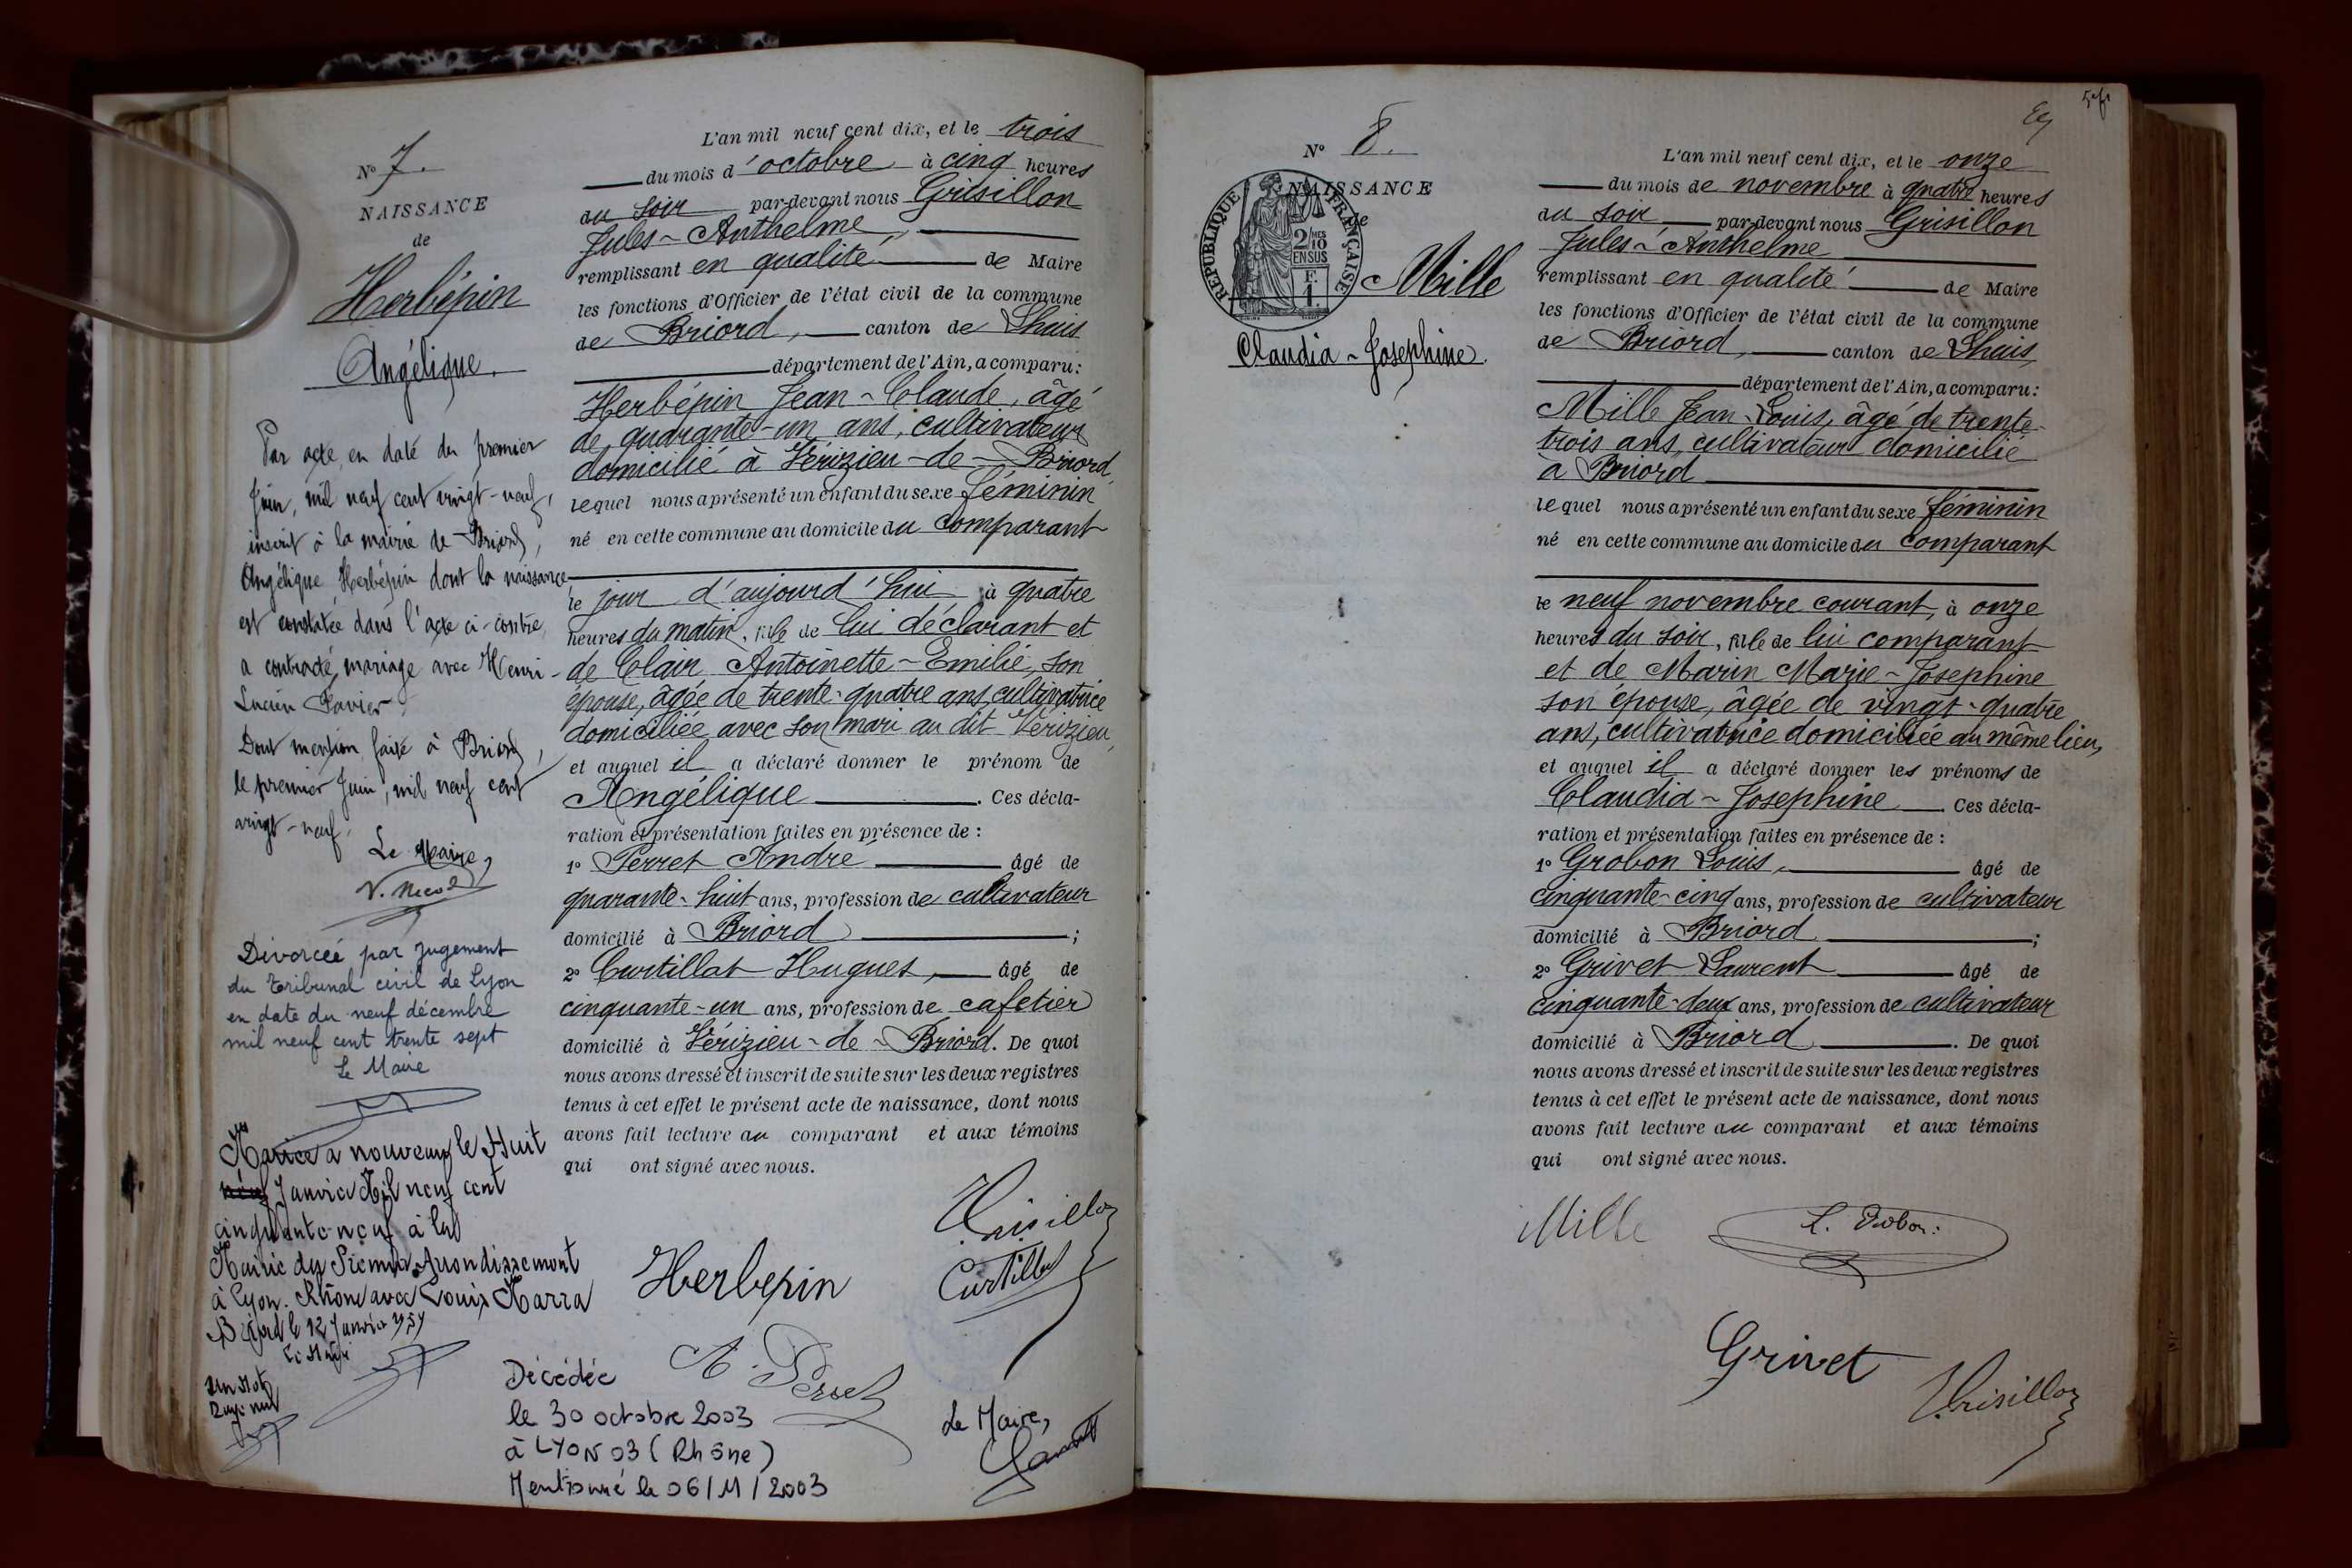 N° 7.
NAISSANCE
de
Herbépin
Angélique.
Par acte en date du premier
Juin, mil neuf cent vingt-neuf,
inscrit à la mairie de Briord,
Angélique Herbépin dont la naissance
est constatée dans l'acte ci-contre,
a contracté mariage avec Henri-
Lucien
Dont mention faite à Briord,
le premier Juin, mil neuf cent
vingt-neuf.
Le Maire,
Divorcée par jugement
du tribunal civil de Lyon
en date du neuf décembre
mil neuf cent trente sept
Le Maire
Mariée a nouveau le Huit
neuf Janvier Mil neuf cent
cinquante-neuf à la
Mairie du Premier Arrondissement
à Lyon. Rhône avec Louis
Briord le 12 Janvier
Le Maire
Un Mot
Rayé nul
L'an mil neuf cent dix, et le trois
du mois d'octobre à cinq heures
du soir par-devant nous Grisillon
Jules-Anthelme,
remplissant en qualité de Maire
les fonctions d'Officier de l'état civil de la commune
de Briord, canton de Lhuis
département de l'Ain, a comparu:
Herbépin Jean-Claude, âgé
de quarante-un ans, cultivateur
domicilié à Vérizieu-de-Briord,
lequel nous a présenté un enfant du sexe féminin
né en cette commune au domicile du comparant
le jour d'aujourd'hui à quatre
heures du matin, fille de lui déclarant et
de Clair Antoinette-Emilie, son
épouse, âgée de trente-quatre ans, cultivatrice
domiciliée avec son mari au dit Vérizieu,
et auquel il a déclaré donner le prénom de
Angélique. Ces décla-
ration et présentation faites en présence de :
1° Perret André âgé de
quarante-huit ans, profession de cultivateur
domicilié à Briord ;
2° Curtillat Hugues, âgé de
cinquante-un ans, profession de cafetier
domicilié à Vérizieu-de-Briord. De quoi
nous avons dressé et inscrit de suite sur les deux registres
tenus à cet effet le présent acte de naissance, dont nous
avons fait lecture au comparant et aux témoins
qui ont signé avec nous.
Grisillon
Herbepin
Curtillat
A. Perret
Décédée
le 30 octobre 2003
à LYON 03 (Rhône)
Mentionné le 06/11/2003
Le Maire,
N° 8.
NAISSANCE
de
RÉPUBLIQUE FRANÇAISE
2/10 MES
EN SUS
F.
1.
Mille
Claudia-Josephine.
L'an mil neuf cent dix, et le onze
du mois de novembre à quatre heures
du soir par-devant nous Grisillon
Jules-Anthelme
remplissant en qualité de Maire
les fonctions d'Officier de l'état civil de la commune
de Briord, canton de Lhuis,
département de l'Ain, a comparu:
Mille Jean-Louis, âgé de trente-
trois ans, cultivateur domicilié
à Briord
lequel nous a présenté un enfant du sexe féminin
né en cette commune au domicile du comparant
le neuf novembre courant, à onze
heures du soir, fille de lui comparant
et de Marin Marie-Josephine
son épouse, âgée de vingt-quatre
ans, cultivatrice domiciliée au même lieu,
et auquel il a déclaré donner les prénoms de
Claudia-Josephine Ces décla-
ration et présentation faites en présence de :
1° Grobon Louis, âgé de
cinquante-cinq ans, profession de cultivateur
domicilié à Briord ;
2° Grivet Laurent âgé de
cinquante-deux ans, profession de cultivateur
domicilié à Briord. De quoi
nous avons dressé et inscrit de suite sur les deux registres
tenus à cet effet le présent acte de naissance, dont nous
avons fait lecture au comparant et aux témoins
qui ont signé avec nous.
Mille
L. Grobon
Grivet
Grisillon